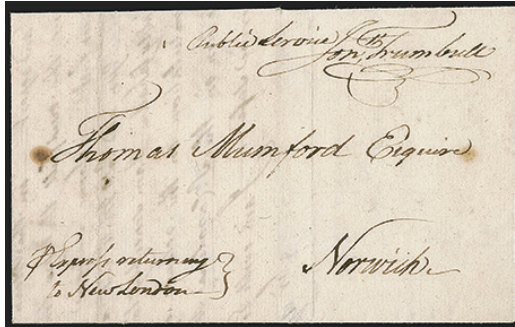 Public Service Jonth Trumbull
Thomas Mumford Esquire
Norwich
⅌ Express returning
to New London